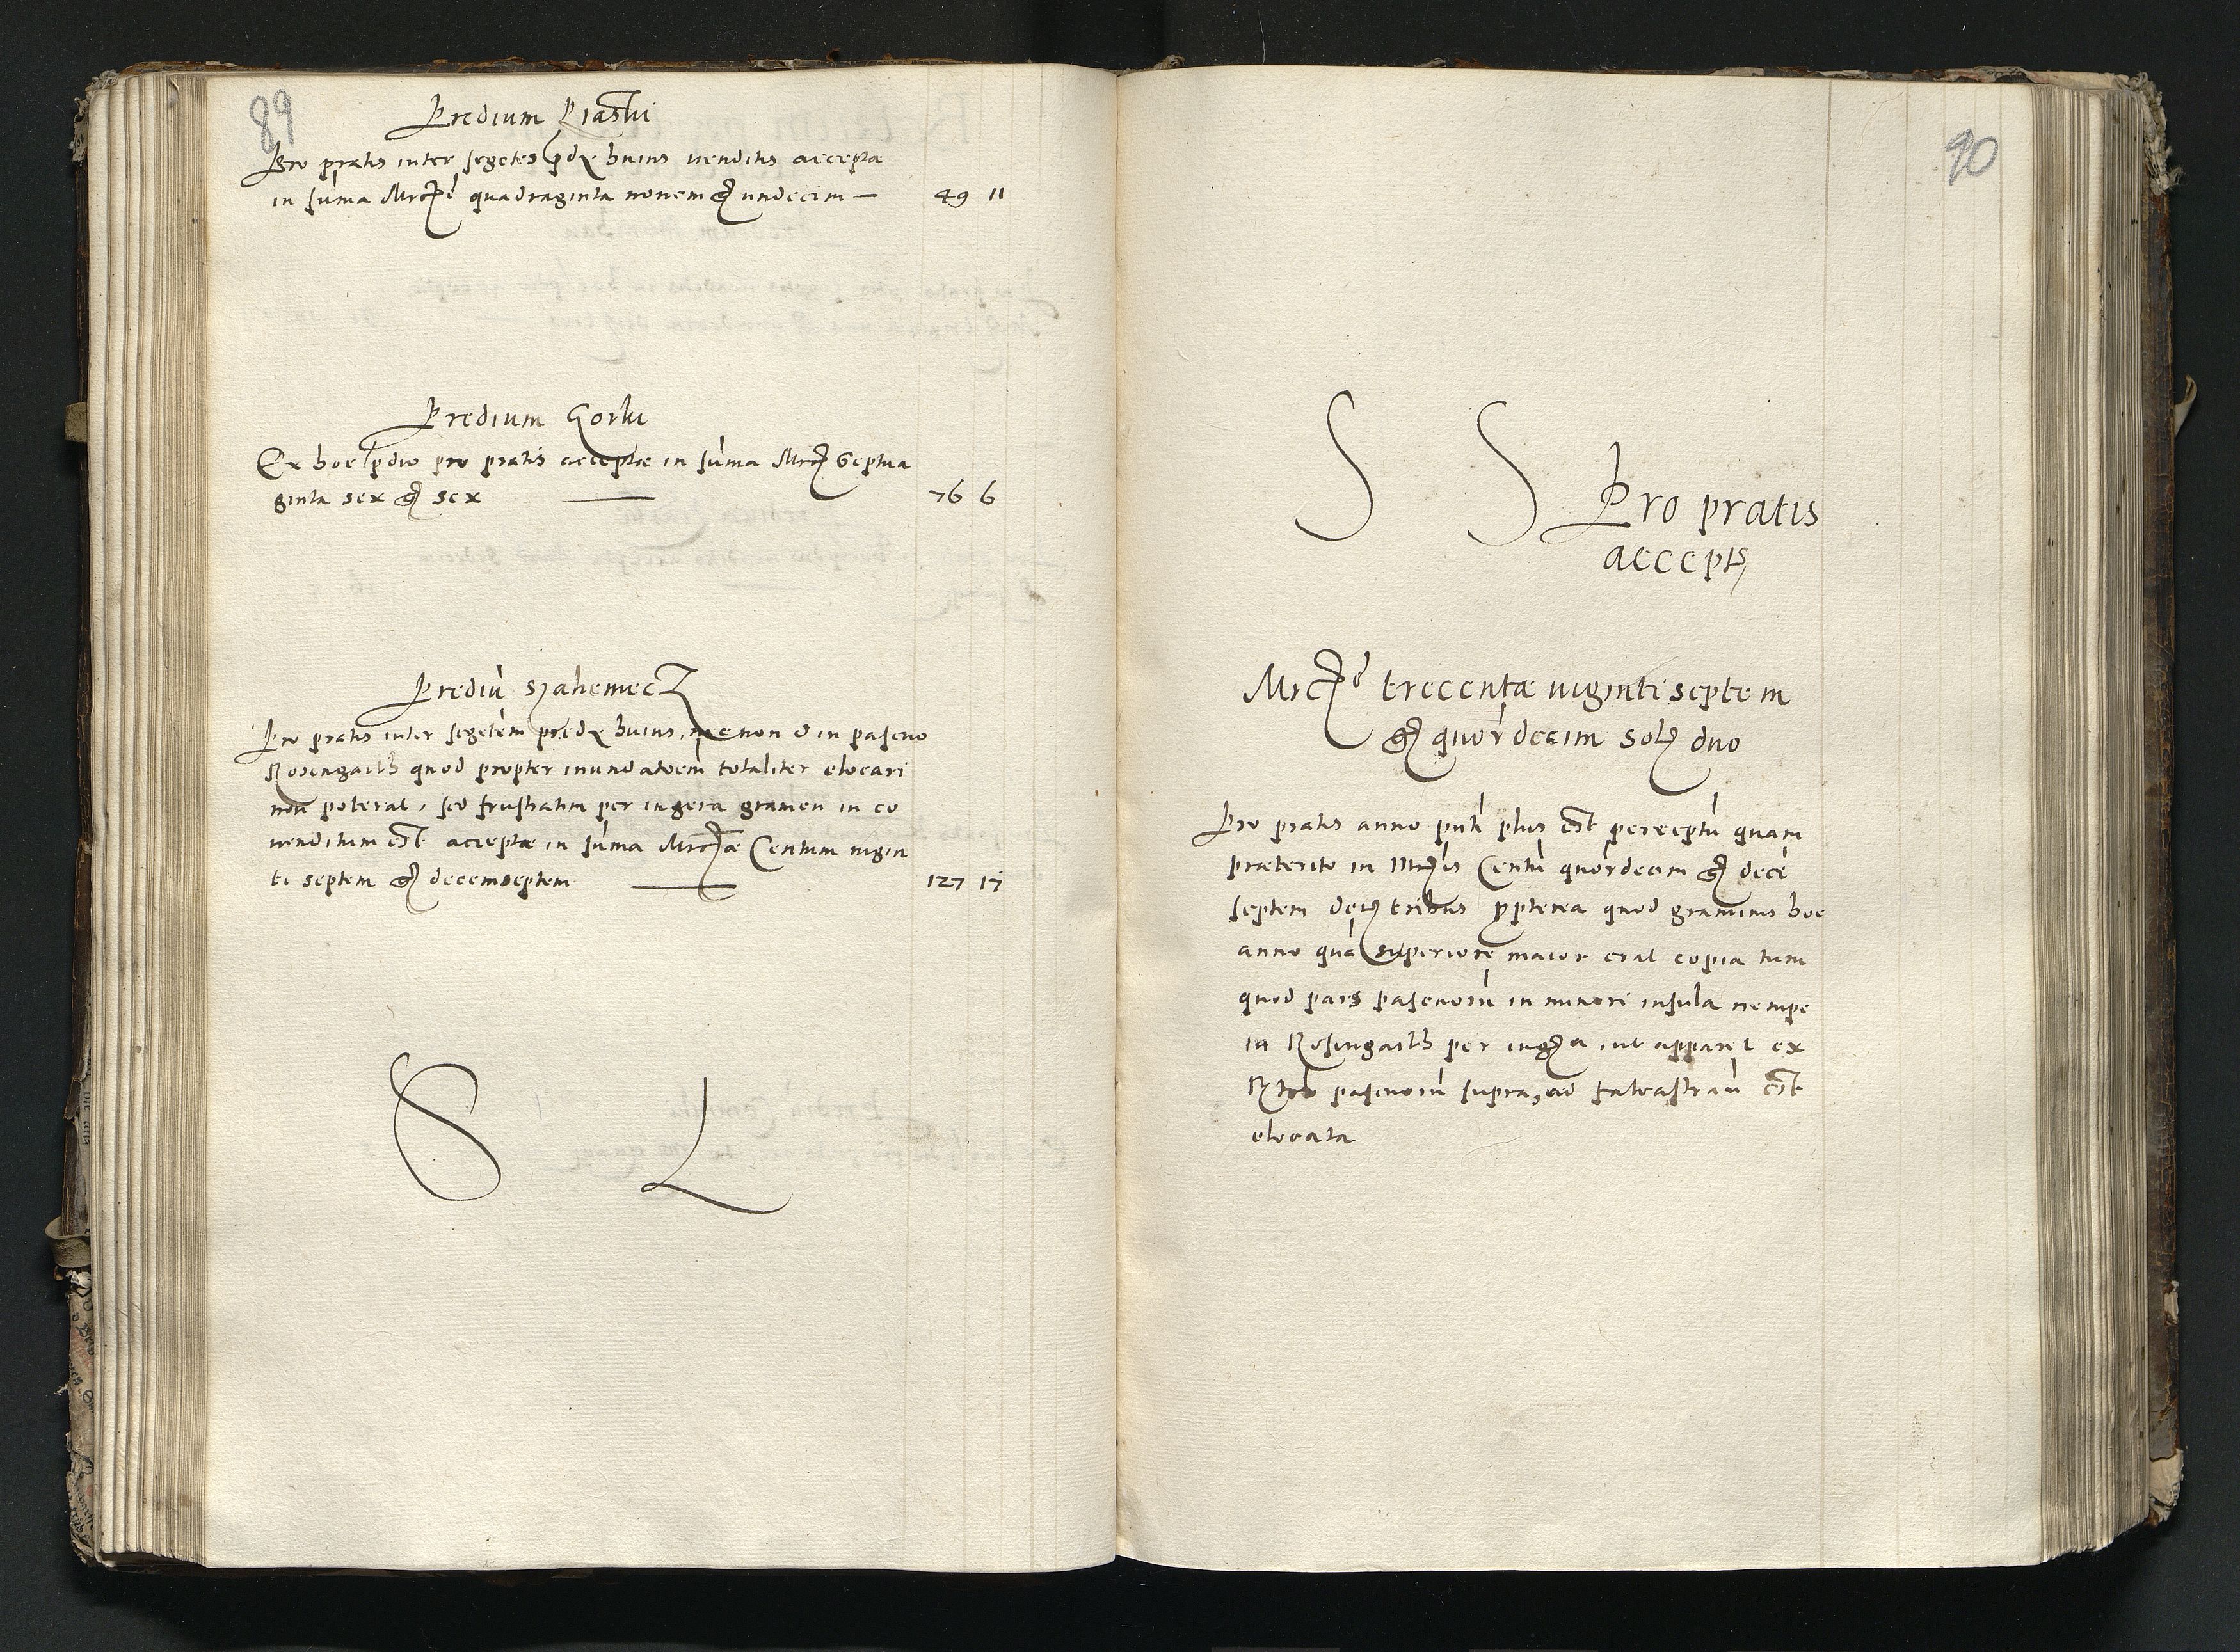 89
Predium Piaski
Pro pratis inter segetes pdÿ huius venditis accepta
in suma Mrcę quadraginta novem gr undecim — 49 11
Predium Gorki
Ex hoc pdio pro pratis acceptæ in suma Mrc Septua
ginta sex gr sex — 76 6
Prediu Szahemecz
Pro pratis inter segetem predÿ huius, necnon & in pascuo
Rosengarth quod propter inundatoem totaliter elocari
non poterat, sed frustratim per iugera gramen in eo
venditum est acceptæ in suma Mrcæ Centum vigin
ti septem gr decemseptem — 127 17
S L
90
S S Pro pratis
accept
Mrce trecentæ viginti septem
gr quordecim Sol duo
Pro pratis anno pnti plus est perceptu quam
præterito in Mrcis Centu quordecim gr dece
septem den tribus ppterea quod graminis hoc
anno qua superiore maior erat copia tum
quod pars pascuoru in minori insula nempe
in Rosengarth per iugera uti apparet ex
pascuoru supra, ad falcastrau est
elocata